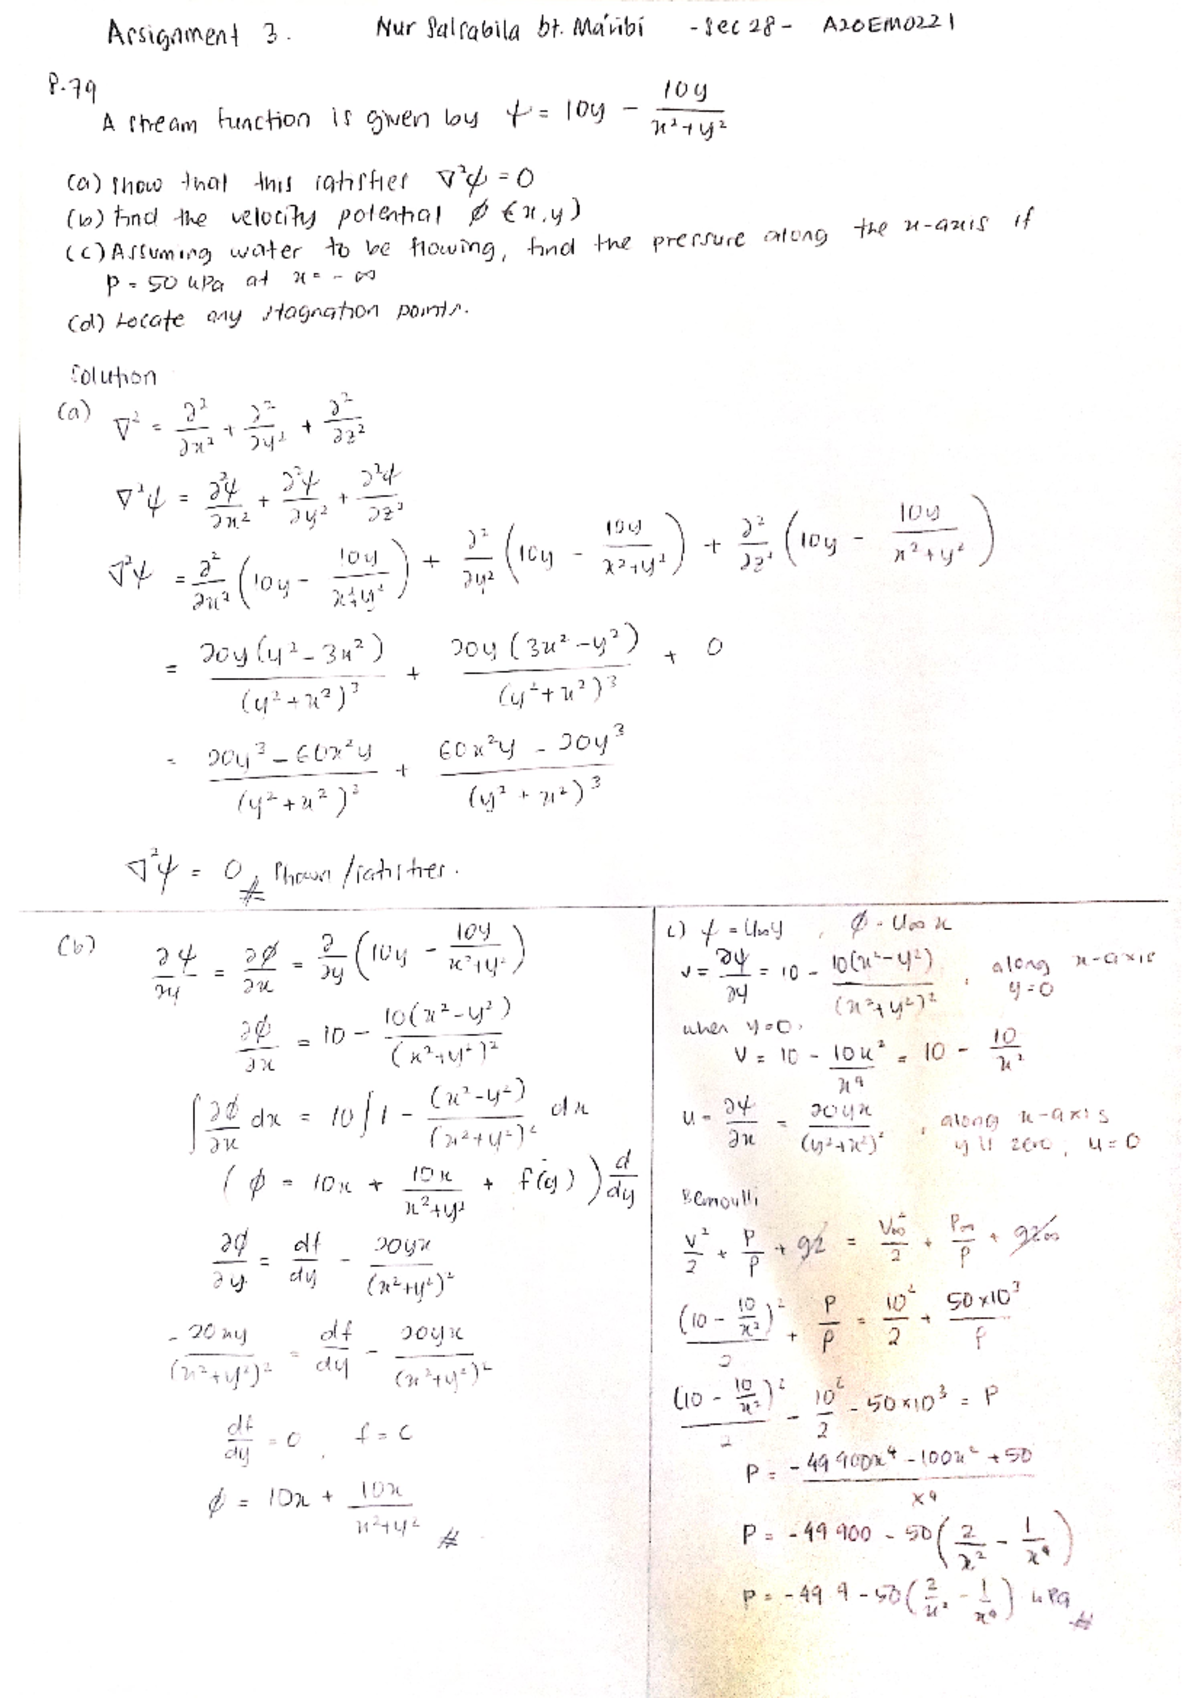 Assignment 3.
Nur Salsabila bt. Ma'ribi - sec 28 - A20EM0221
P.79
A stream function is given by ψ = 10y - 10y/(x²+y²)
(a) Show that this satisfies ∇²ψ = 0
(b) find the velocity potential ϕ (x,y)
(c) Assuming water to be flowing, find the pressure along the x-axis if
P = 50 kPa at x = -∞
(d) Locate any stagnation points.
Solution
(a) ∇² = ∂²/∂x² + ∂²/∂y² + ∂²/∂z²
∇²ψ = ∂²ψ/∂x² + ∂²ψ/∂y² + ∂²ψ/∂z²
∇²ψ = ∂²/∂x² (10y - 10y/(x²+y²)) + ∂²/∂y² (10y - 10y/(x²+y²)) + ∂²/∂z² (10y - 10y/(x²+y²))
= 20y(y²-3x²)/(y²+x²)³ + 20y(3x²-y²)/(y²+x²)³ + 0
= 20y³-60x²y/(y²+x²)³ + 60x²y-20y³/(y²+x²)³
∇²ψ = 0 # Shown/satisfies.
(b) ∂ψ/∂y = ∂ϕ/∂x = ∂/∂y (10y - 10y/(x²+y²))
∂ϕ/∂x = 10 - 10(x²-y²)/(x²+y²)²
∫ ∂ϕ/∂x dx = 10 ∫ 1 - (x²-y²)/(x²+y²)² dx
(ϕ = 10x + 10x/(x²+y²) + f(y)) d/dy
∂ϕ/∂y = df/dy - 20yx/(x²+y²)²
-20xy/(x²+y²)² = df/dy - 20yx/(x²+y²)²
df/dy = 0, f = C
ϕ = 10x + 10x/(x²+y²) #
c) ψ = U∞y, ϕ = U∞x
v = ∂ψ/∂y = 10 - 10(x²-y²)/(x²+y²)², along x-axis y=0
when y=0,
V = 10 - 10x²/x⁴ = 10 - 10/x²
u = ∂ψ/∂x = 20yx/(y²+x²)², along x-axis y is zero, u=0
Bernoulli
V²/2 + P/ρ + gz = V∞²/2 + P∞/ρ + gz∞
(10 - 10/x²)²/2 + P/ρ = 10²/2 + 50×10³/ρ
(10 - 10/x²)²/2 - 10²/2 - 50×10³ = P
P = -49 900x⁴ - 100x² + 50/x⁴
P = -49 900 - 50(2/x² - 1/x⁴)
P = -49.9 - 50(2/x² - 1/x⁴) kPa #